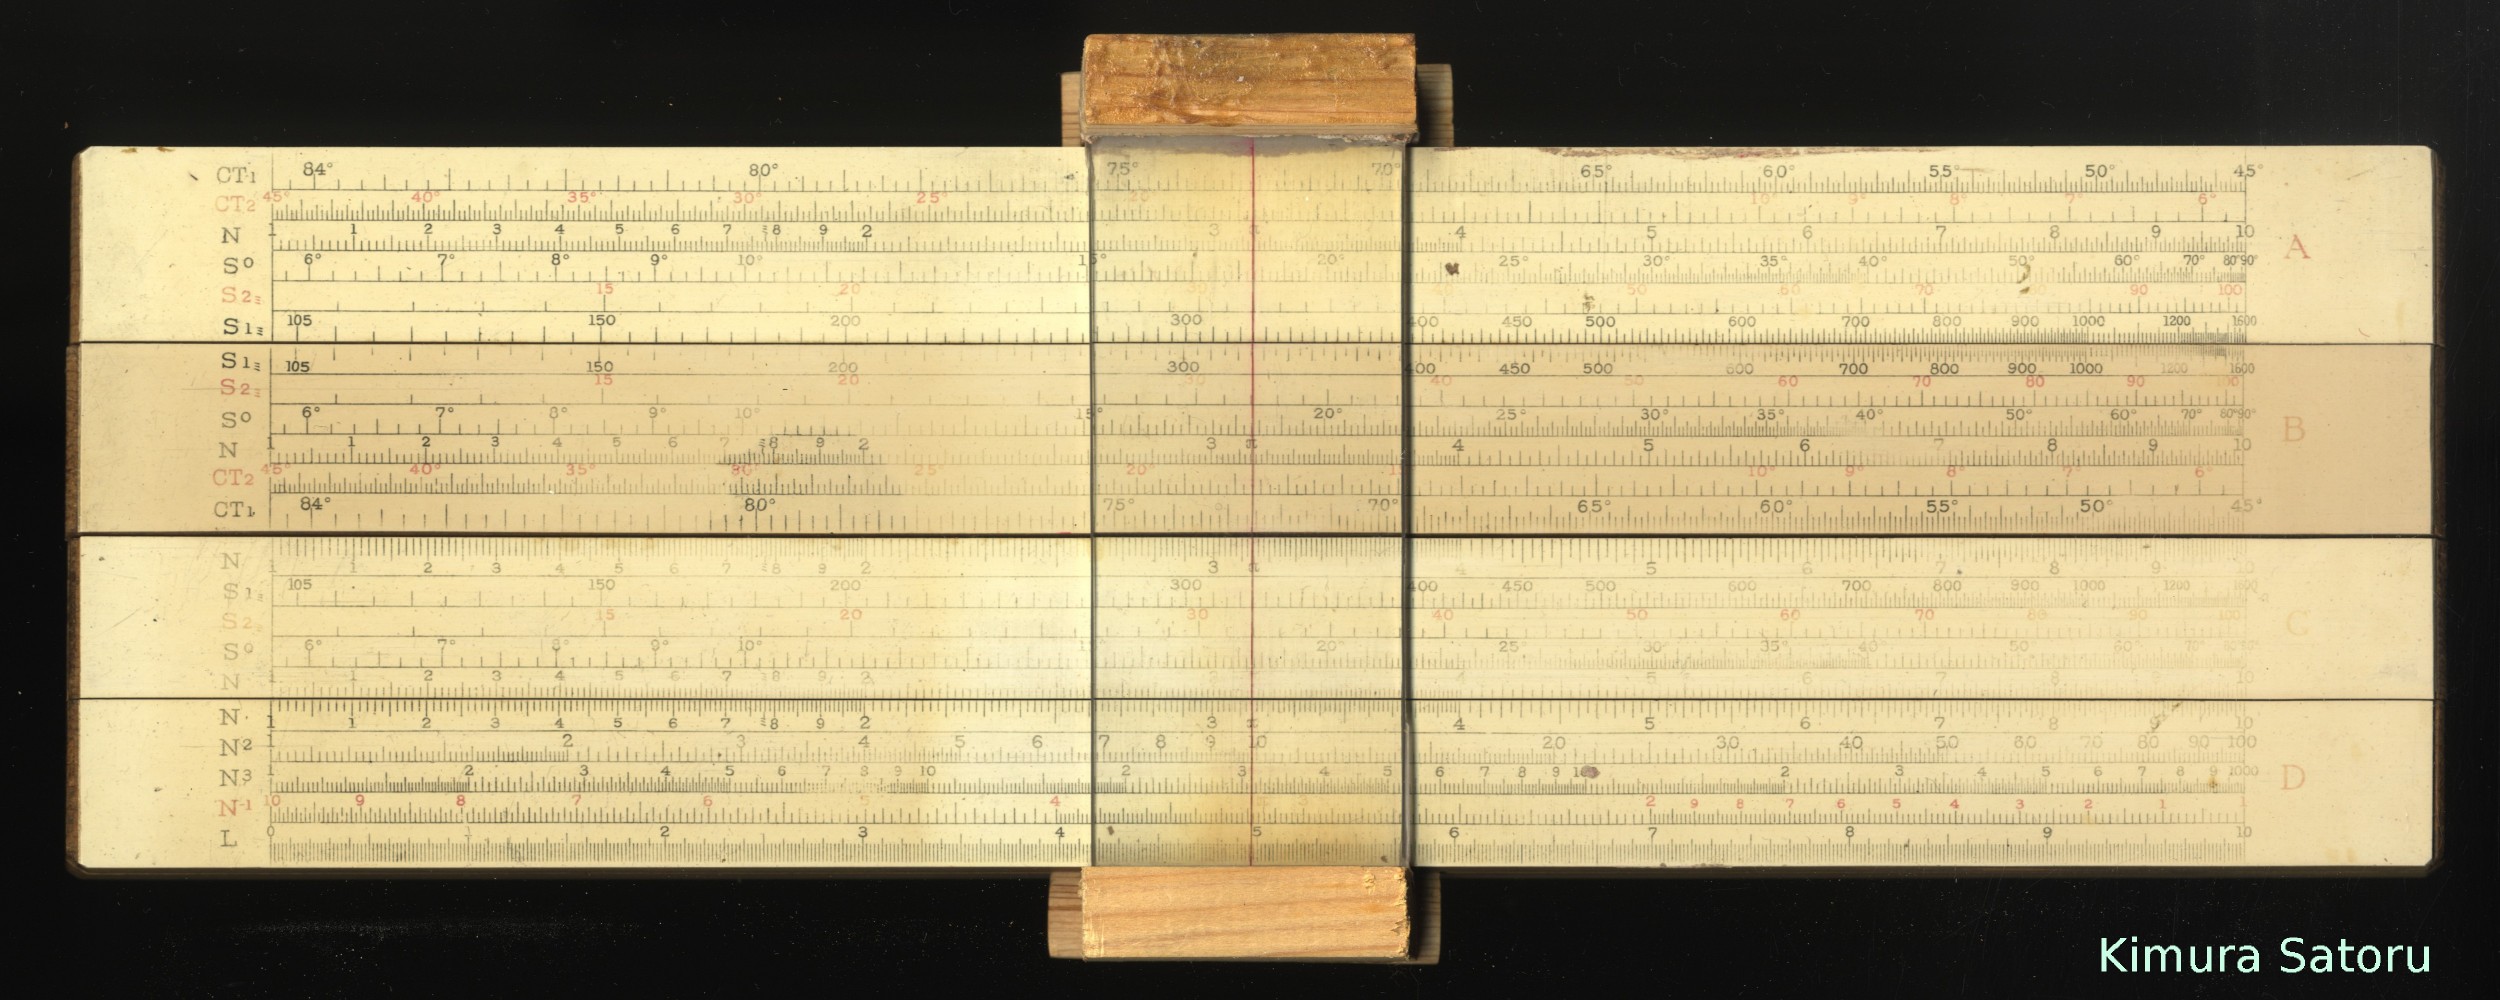 CT1 84° 80° 75° 70° 65° 60° 55° 50° 45°
CT2 45° 40° 35° 30° 25° 20° 10° 9° 8° 7° 6°
N 1 1 2 3 4 5 6 7 8 9 2 3 π 4 5 6 7 8 9 10
A
S° 6° 7° 8° 9° 10° 15° 20° 25° 30° 35° 40° 50° 60° 70° 80° 90°
S2 15 20 30 40 50 60 70 90 100
S1 105 150 200 300 400 450 500 600 700 800 900 1000 1200 1600
S1 105 150 200 300 400 450 500 600 700 800 900 1000 1200 1600
S2 15 20 30 40 50 60 70 80 90 100
S° 6° 7° 8° 9° 10° 15° 20° 25° 30° 35° 40° 50° 60° 70° 80° 90°
B
N 1 1 2 3 4 5 6 7 8 9 2 3 π 4 5 6 7 8 9 10
CT2 45° 40° 35° 30° 25° 20° 15 10° 9° 8° 7° 6°
CT1 84° 80° 75° 70° 65° 60° 55° 50° 45°
N 1 1 2 3 4 5 6 7 8 9 2 3 π 4 5 6 7 8 9 10
S1 105 150 200 300 400 450 500 600 700 800 900 1000 1200 1600
S2 15 20 30 40 50 60 70 80 90 100
C
S° 6° 7° 8° 9° 10° 15° 20° 25° 30° 35° 40° 50° 60° 70°
N 1 1 2 3 4 5 6 7 8 9 2 3 4 5 6 7 8 9 10
N 1 1 2 3 4 5 6 7 8 9 2 3 π 4 5 6 7 8 9 10
N2 1 2 3 4 5 6 7 8 9 10 20 30 40 50 60 70 80 90 100
N3 1 2 3 4 5 6 7 8 9 10 2 3 4 5 6 7 8 9 2 3 4 5 6 7 8 9 1000
D
N-1 10 9 8 7 6 5 4 3 2 9 8 7 6 5 4 3 2 1 1
L 0 1 2 3 4 5 6 7 8 9 10
Kimura Satoru